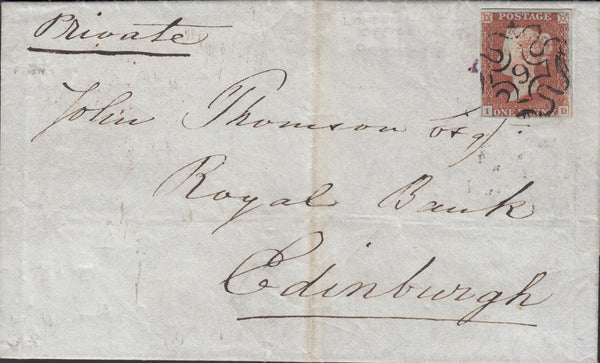 Private
POSTAGE
9
I D
ONE PENNY
John Thomson Esqr.
Royal Bank
Edinburgh